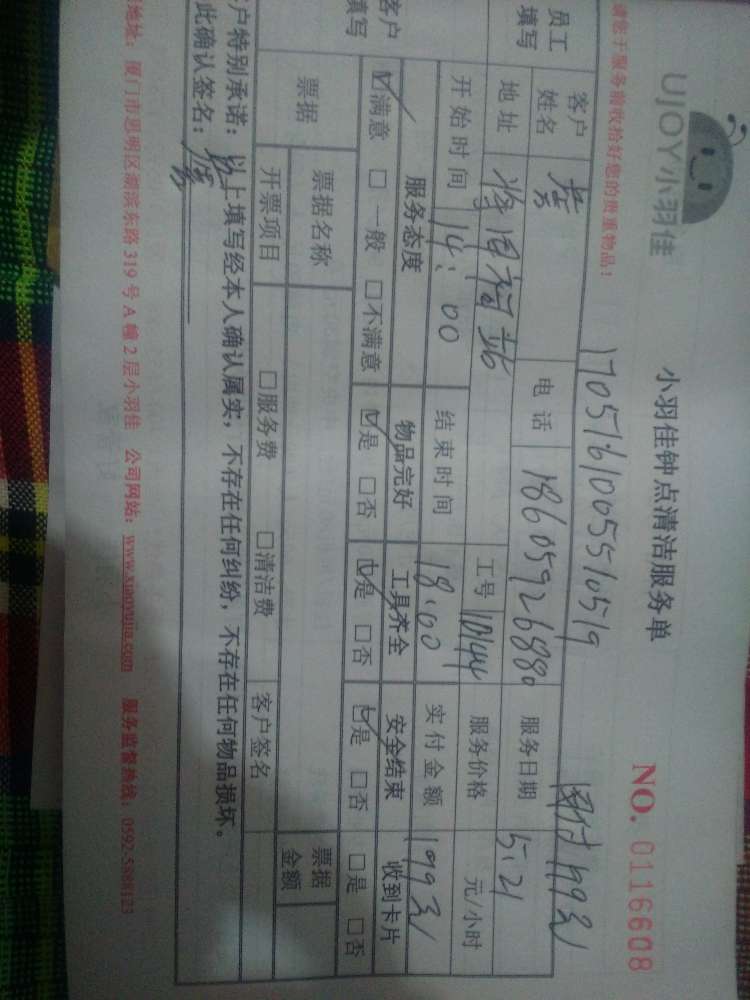 UJOY小羽佳
小羽佳钟点清洁服务单
NO. 0116608
1705161005510519
团付199元
请您于服务前收拾好您的贵重物品！
员工填写
客户姓名 黄 电话 18605926880 服务日期 5.21
地址 工号 10144 服务价格 元/小时
开始时间 14:00 结束时间 18:00 实付金额 199元
客户填写
服务态度 物品完好 工具齐全 安全结束 收到卡片
☑满意 □一般 □不满意 ☑是 □否 ☑是 □否 ☑是 □否 □是 □否
票据 票据名称 票据金额
开票项目 □服务费 □清洁费 客户签名
户特别承诺：以上填写经本人确认属实，不存在任何纠纷，不存在任何物品损坏。
此确认签名：
地址：厦门市思明区湖滨东路 319 号 A 幢 2 层小羽佳 公司网站：www.xiaoyujia.com 服务监督热线：0592-5888123